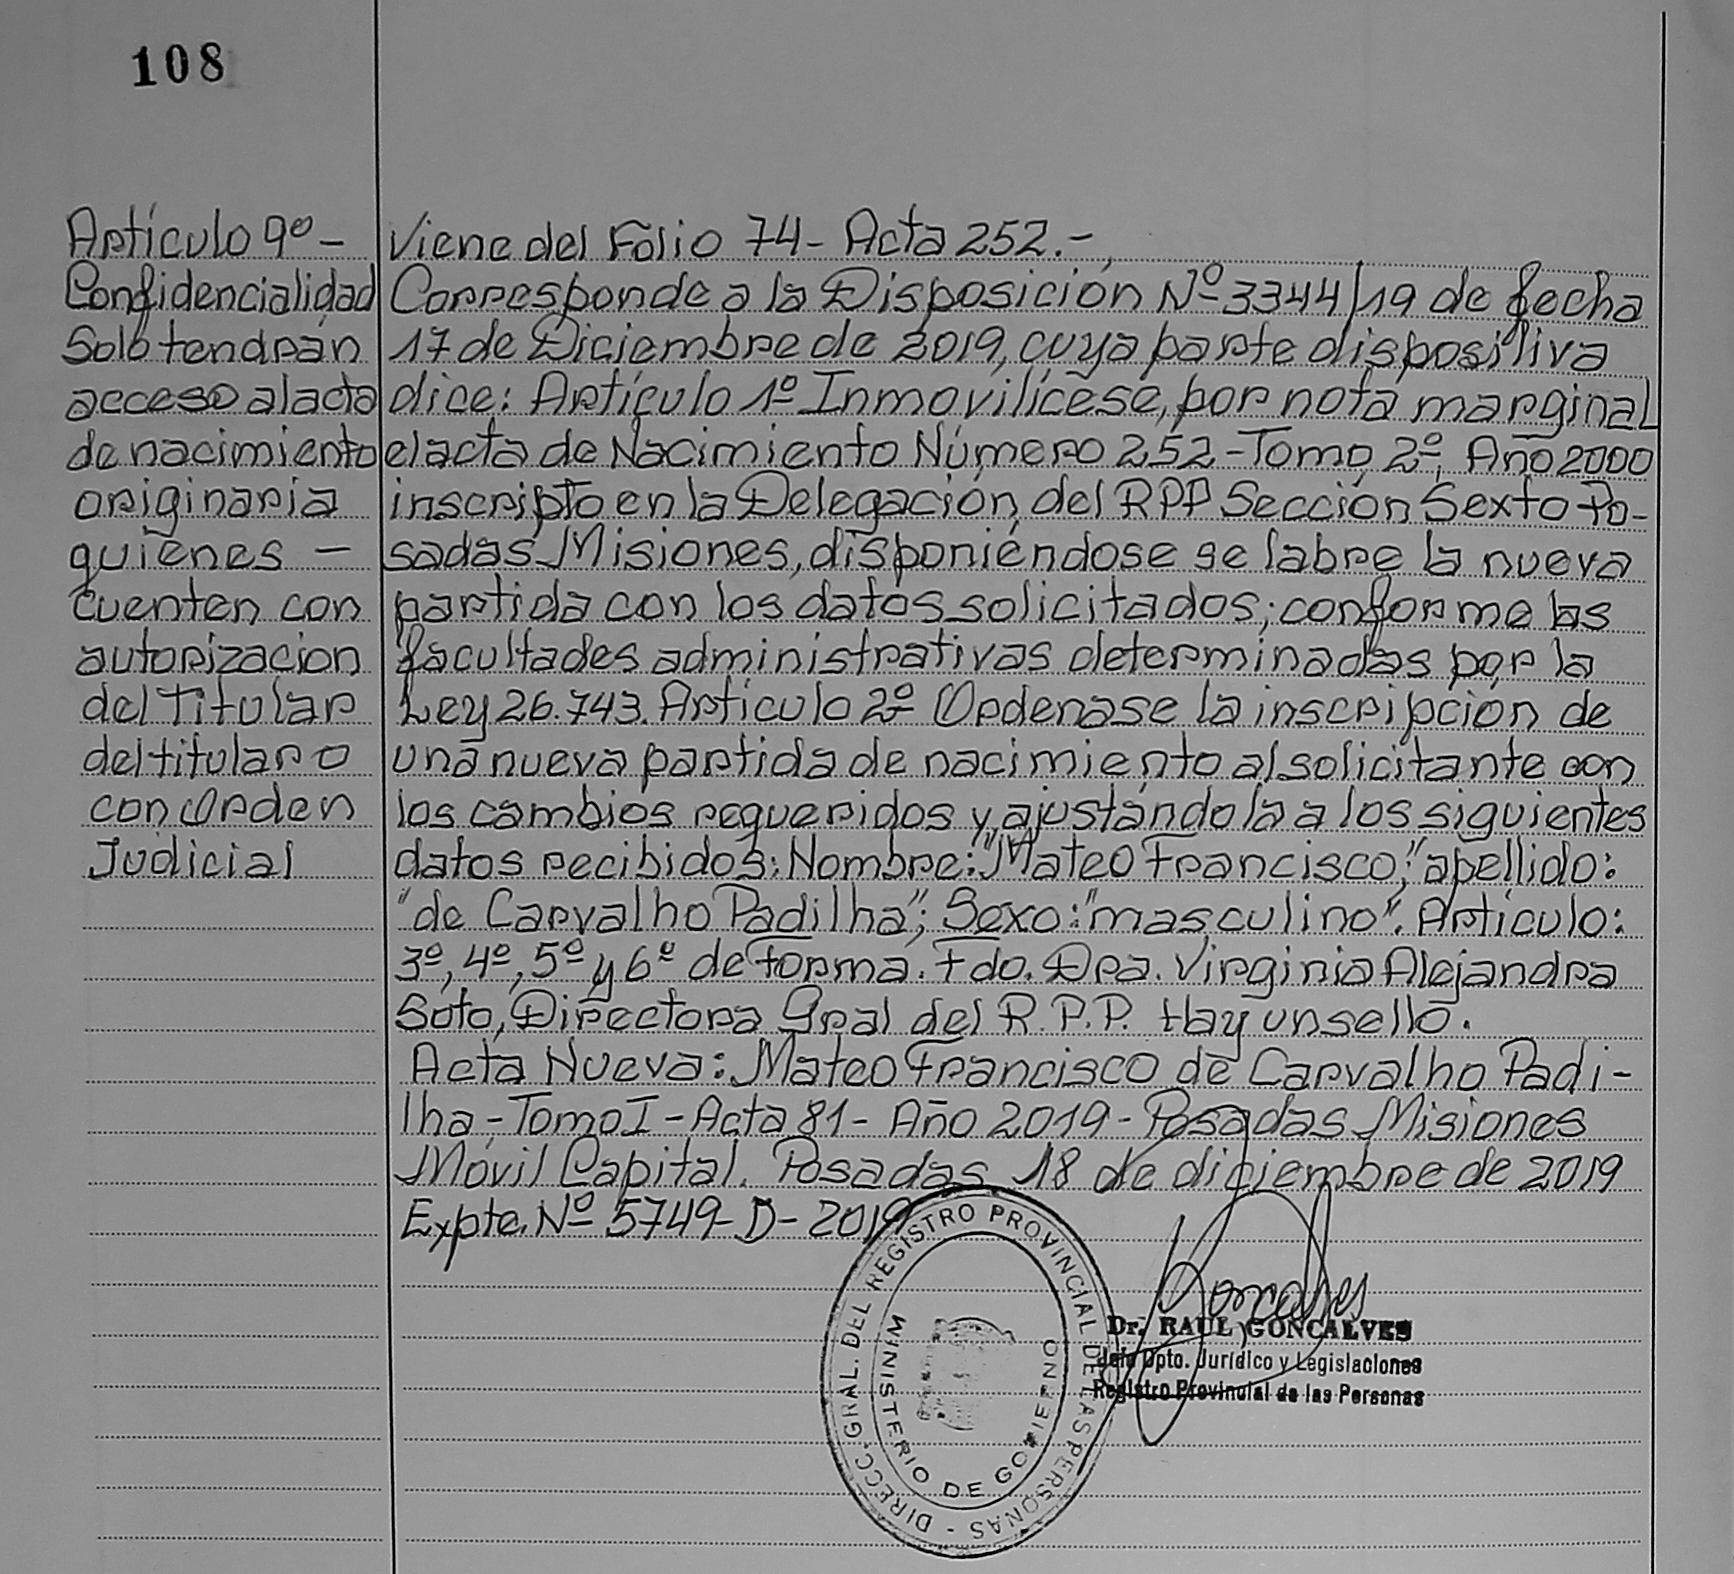 108
Artículo 9º-
Confidencialidad
Solo tendrán
acceso al acta
de nacimiento
originaria
quienes -
cuenten con
autorizacion
del Titular
del titular o
con Orden
Judicial
Viene del Folio 74- Acta 252.-
Corresponde a la Disposición Nº 3344/19 de fecha
17 de Diciembre de 2019, cuya parte dispositiva
dice: Artículo 1º Inmovilícese, por nota marginal
el acta de Nacimiento Número 252-Tomo 2º, Año 2000
inscripto en la Delegación del RPP Sección Sexto Po-
sadas Misiones, disponiéndose se labre la nueva
partida con los datos solicitados; conforme las
facultades administrativas determinadas por la
Ley 26.743. Artículo 2º Ordenase la inscripción de
una nueva partida de nacimiento al solicitante con
los cambios requeridos y ajustándola a los siguientes
datos recibidos: Nombre: "Mateo Francisco," apellido:
"de Carvalho Padilha"; Sexo: "masculino". Artículo:
3º, 4º, 5º y 6º de forma. Fdo. Dra. Virginia Alejandra
Soto, Directora Gral del R.P.P. Hay un sello.
Acta Nueva: Mateo Francisco de Carvalho Padi-
lha-Tomo I-Acta 81- Año 2019- Posadas Misiones
Móvil Capital. Posadas, 18 de diciembre de 2019
Expte. Nº 5749-D-2019
DIRECC. GRAL. DEL REGISTRO PROVINCIAL DE LAS PERSONAS -
MINISTERIO DE GOBIERNO
Goncalves
Dr. RAUL GONCALVES
Jefe Dpto. Jurídico y Legislaciones
Registro Provincial de las Personas